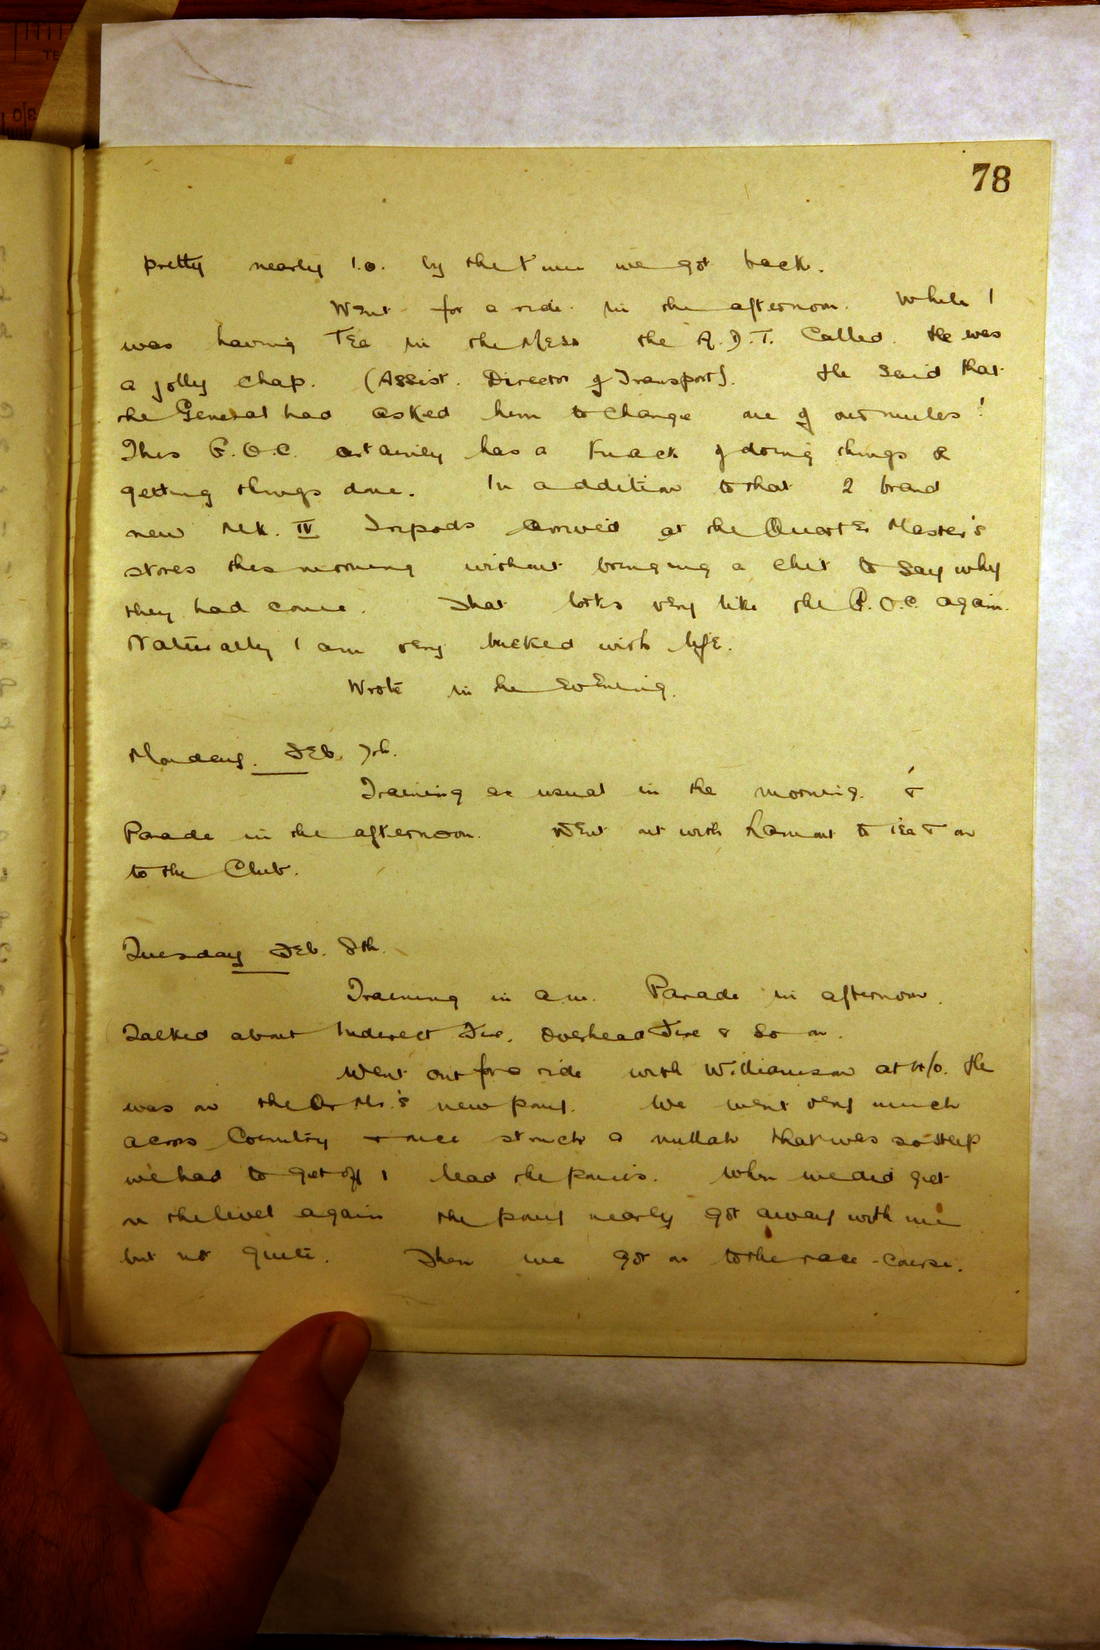 78
pretty nearly 1.0. by the time we got back.
Went for a ride in the afternoon. While I
was having Tea in the Mess the A.D.T. called. He was
a jolly chap. (Assist. Director of Transport). He said that
the General had asked him to change one of our mules!
This G.O.C. certainly has a knack of doing things &
getting things done. In addition to that 2 brand
new Mk. IV Tripods arrived at the Quarter Master's
stores this morning without bringing a chit to say why
they had come. That looks very like the G.O.C. again.
Naturally I am very bucked with life.
Wrote in the evening.
Monday. Feb. 7th.
Training as usual in the morning. &
Parade in the afternoon. Went out with Lamont to tea & on
to the Club.
Tuesday Feb. 8th.
Training in a.m. Parade in afternoon.
Talked about Indirect Fire, Overhead Fire & so on.
Went out for a ride with Williamson at 4/0. He
was on the Qr Mr.'s new pony. We went very much
across Country & once struck a nullah that was so steep
we had to get off & lead the ponies. When we did get
on the level again the pony nearly got away with me
but not quite. Then we got on to the race-course.